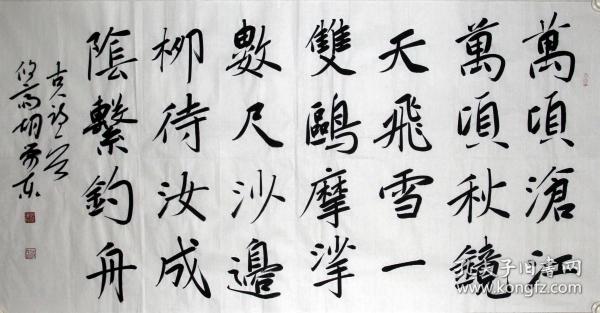 萬頃滄江
萬頃秋鏡
天飛雪一
雙鷗摩挲
數尺沙邊
柳待汝成
陰繫釣舟
古人
孔夫子旧书网
www.kongfz.com